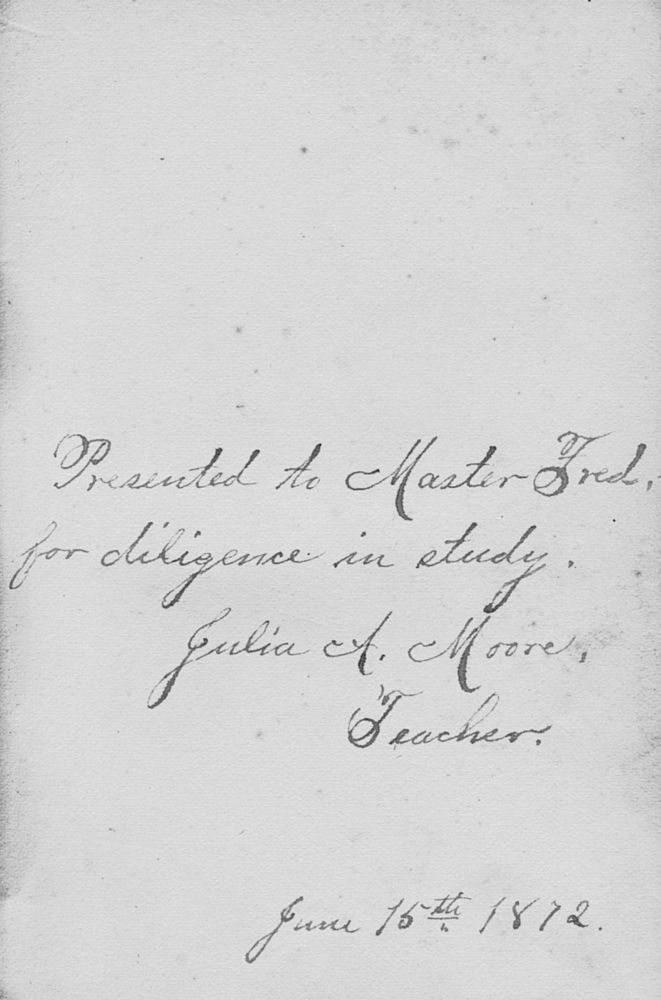 Presented to Master Fred,
for diligence in study.
Julia A. Moore,
Teacher.
June 15th 1872.